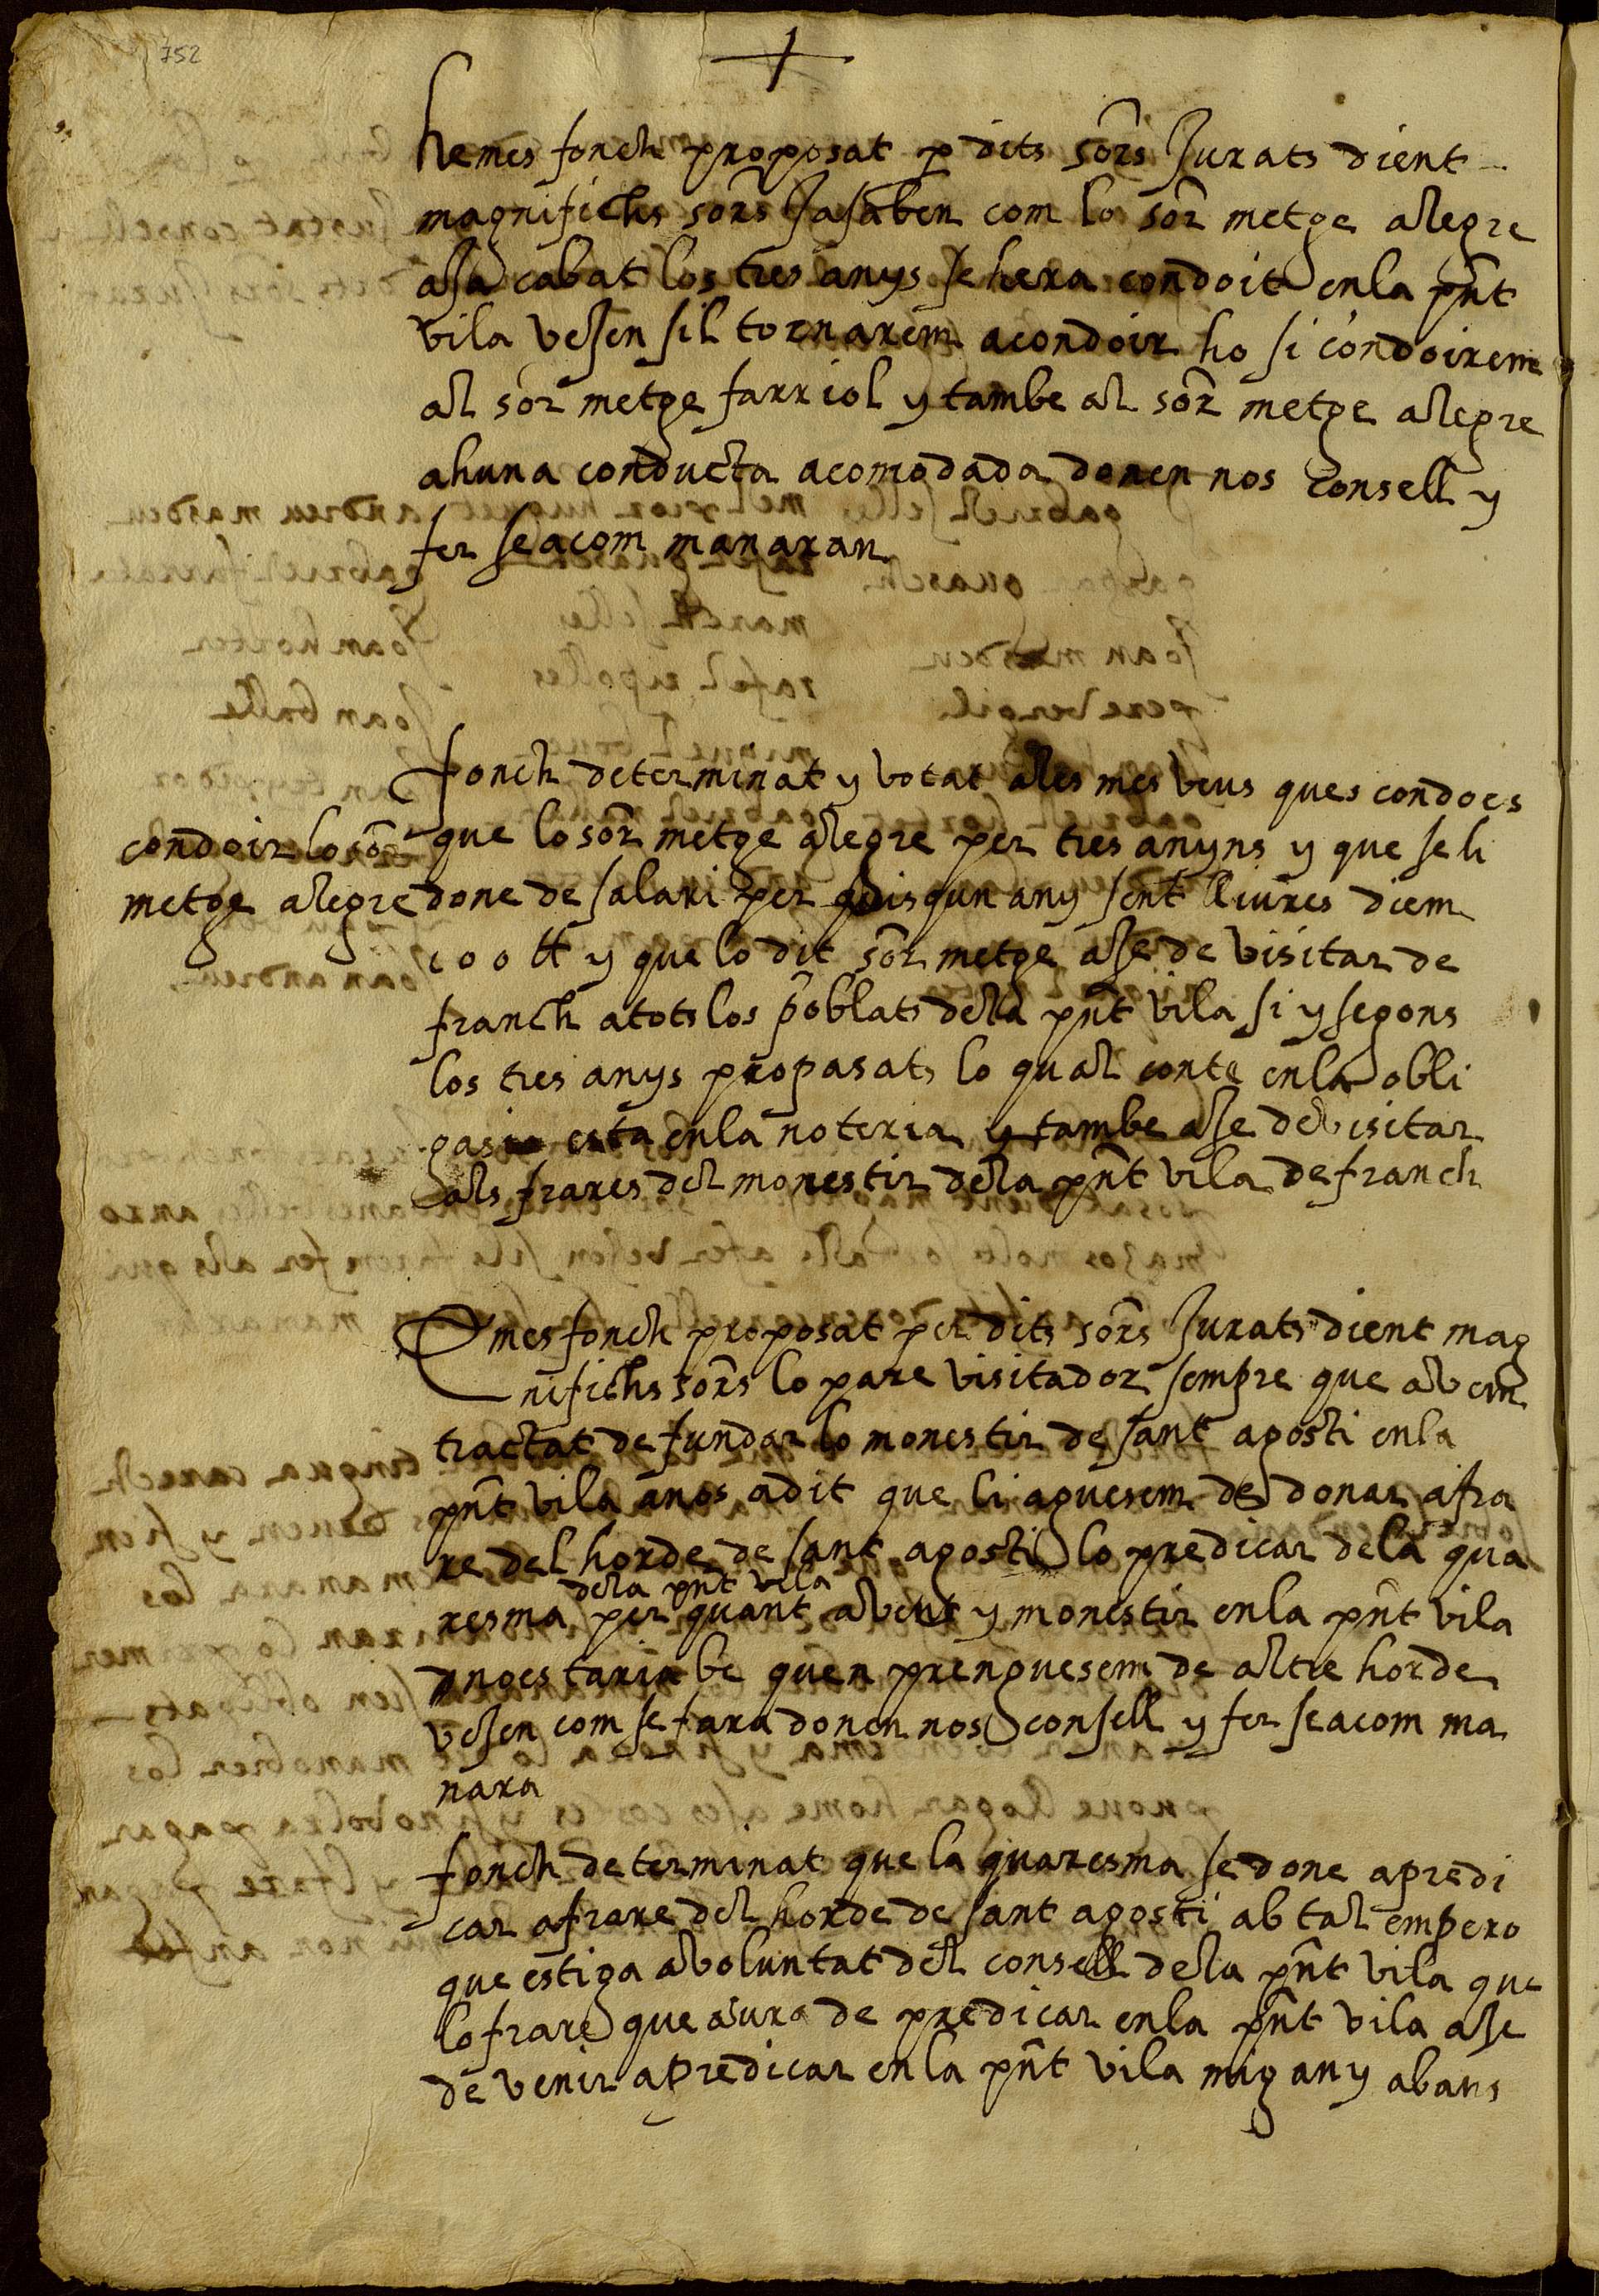 752
hemes fonch proposat p dits sors Jurats dient
magnifichs sors Jasaben com lo sor metge alegre
assa cabat los tres anys se hera condoit enla pnt
vila vesen sil tornarem acondoir ho si condoirem
al sor metge farriol y tambe al sor metge alegre
ahuna conducta acomodada donen nos consell y
fer se acom manaran
fonch determinat y votat ales mes veus ques condoes
condoir lo sor
metge alegre
que lo sor metge alegre per tres anyns y que se li
done de salari per quisqun any sent lliures diem
100 ℔ y que lo dit sor metge ase de visitar de
franch atots los poblats dela pnt vila si y segons
los tres anys propasats lo qual conte enla obli
gasio esta enla noteria y tambe ase de visitar
als frares del monestir dela pnt vila de franch
E mes fonch proposat per dits sors Jurats dient mag
nifichs sors lo pare visitador sempre que avem
tractat de fundar lo monestir de sant agosti enla
pnt vila anos adit que li aguesem de donar afra
re del horde de sant agosti lo predicar dela qua
dela pnt vila
resma per quant avent y monestir enla pnt vila
no estaria be quen prenguesem de altre horde
vesen com se fara donen nos consell y fer se acom ma
nara
fonch determinat que la quaresma se done apredi
car afrare del horde de sant agosti ab tal empero
que estiga avoluntat del consell dela pnt vila que
lo frare que aura de predicar enla pnt vila ase
de venir apredicar enla pnt vila mig any abans